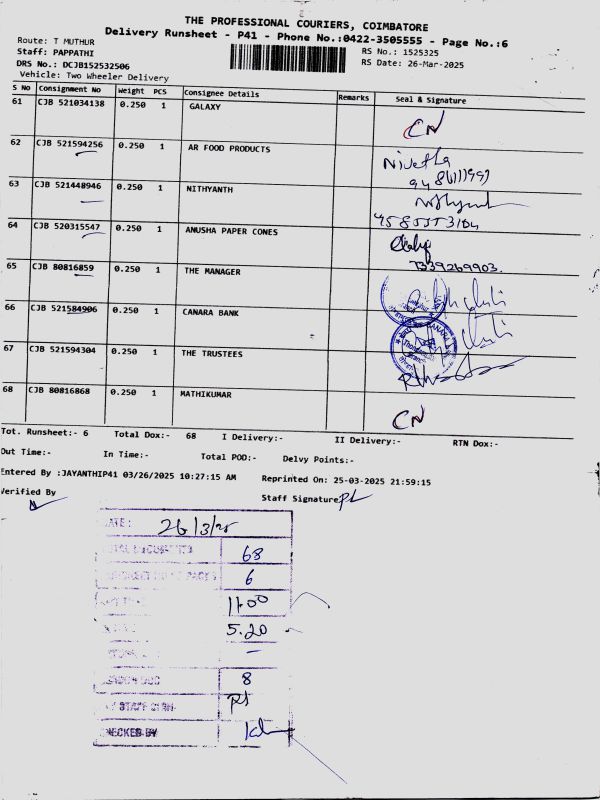 THE PROFESSIONAL COURIERS, COIMBATORE
Delivery Runsheet - P41 - Phone No.:0422-3505555 - Page No.:6
Route: T MUTHUR
RS No.: 1525325
Staff: PAPPATHI
RS Date: 26-Mar-2025
DRS No.: DCJB152532506
Vehicle: Two Wheeler Delivery
S No Consignment No Weight PCS Consignee Details Remarks Seal & Signature
61 CJB 521034138 0.250 1 GALAXY
CN
62 CJB 521594256 0.250 1 AR FOOD PRODUCTS
Nivetha
63 CJB 521448946 0.250 1 NITHYANTH
64 CJB 520315547 0.250 1 ANUSHA PAPER CONES
7339269903
65 CJB 80816859 0.250 1 THE MANAGER
66 CJB 521584906 0.250 1 CANARA BANK
67 CJB 521594304 0.250 1 THE TRUSTEES
68 CJB 80816868 0.250 1 MATHIKUMAR
CN
Tot. Runsheet:- 6 Total Dox:- 68 I Delivery:- II Delivery:- RTN Dox:-
Out Time:- In Time:- Total POD:- Delvy Points:-
Entered By :JAYANTHIP41 03/26/2025 10:27:15 AM Reprinted On: 25-03-2025 21:59:15
Verified By
Staff Signature
DATE: 26/3/25
68
6
11.00
5.20
-
8
STAFF SIGN
CHECKED BY